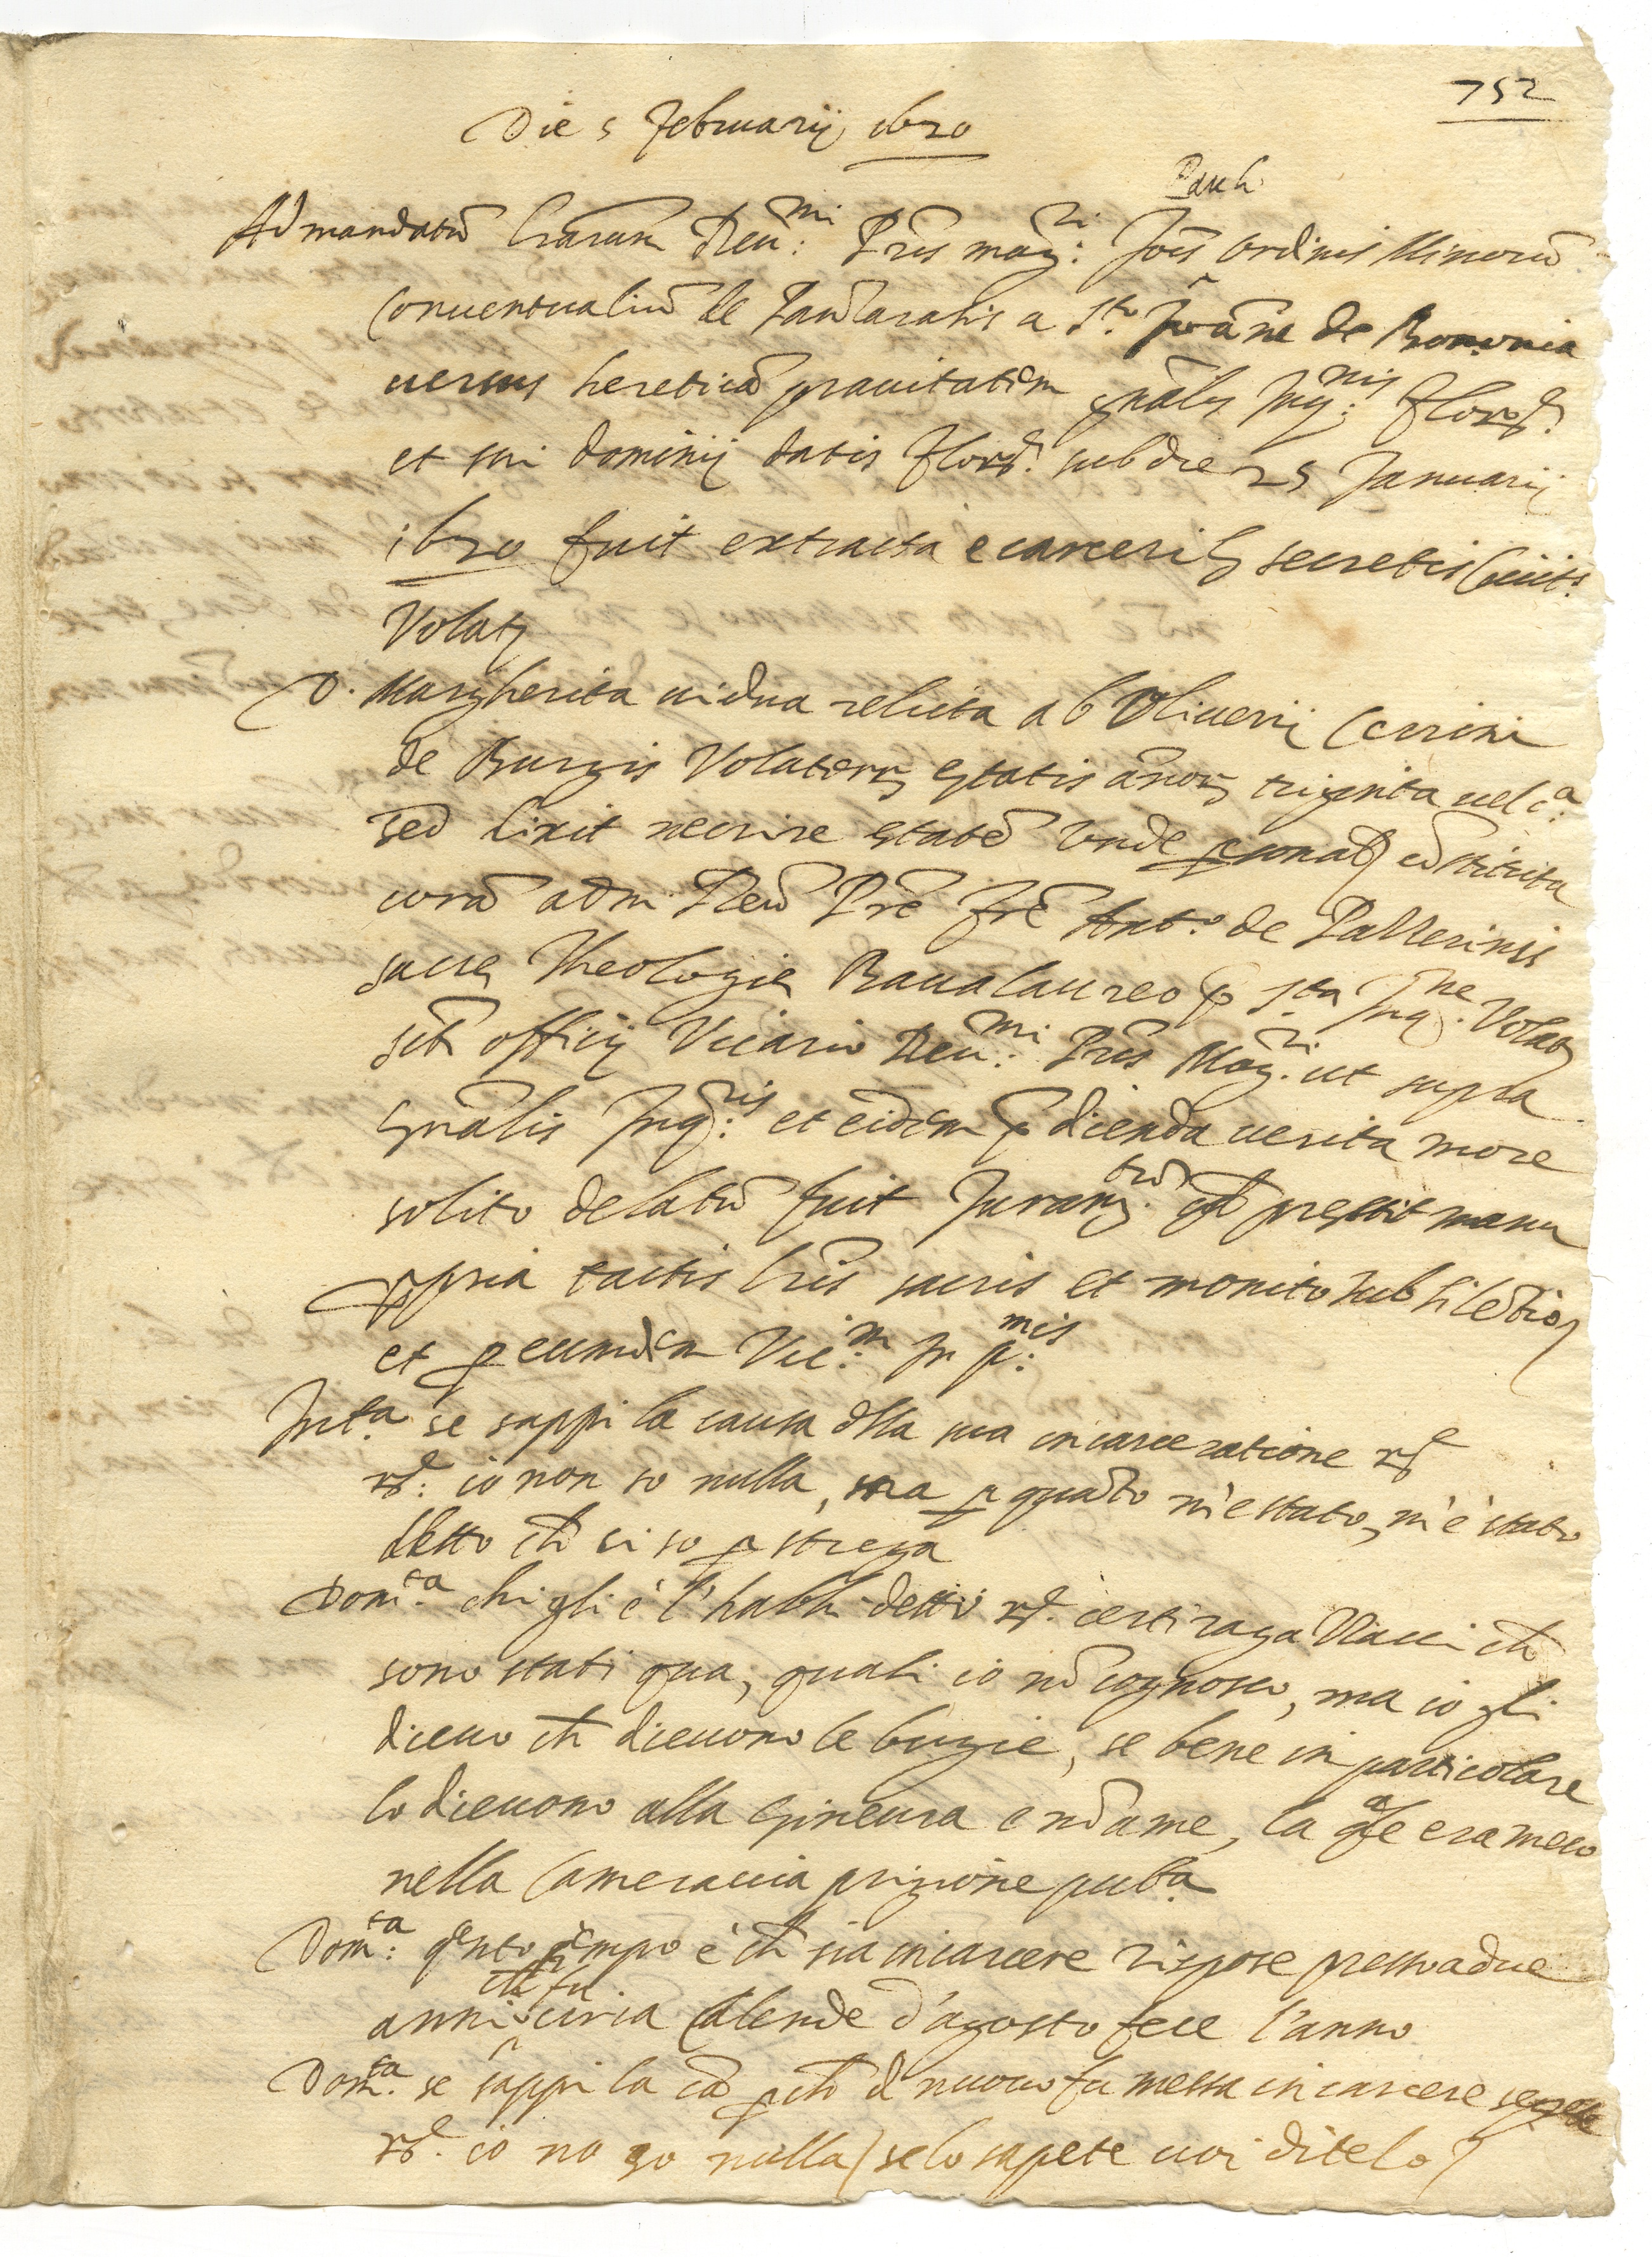 752
Die 5 februarij 1620
Pauli
Ad mandatū lrarum Reu:mi Pris mag:ri Jois ordinis Minorū
Conuentualiū de a S.to Joāne de Bononia
uersus hereticā prauitatem gnalis Inq:nis florē.
et sui dominij datis florē. sub die 25 Januarij
1620 fuit extracta e carcerib secretis Ciuit:s
Volat
D. Margherita uidua relicta ab Oliuerij Cecrini
de Burgis Volaterr etatis annor triginta uel c.a
sed dixit nescire etatē unde psonalr cōstituta
corā adm. Reu Pre fre Ant.o de Pallerinis
sacre Theologie Bacalaureo p s.ta Inq.ne Volat
sti officij Vicario Reu:mi Pris Mag.ri ut supra
gnalis Inq:ris et eidem p dicenda uerita more
solito delatū fuit Juram.tū qd prestit manu
ppria tactis lris sacris et monito sub silētio
et p eumdem Vic:m In p:mis
Int.a se sappi la causa dlla sua incarceratione rs
rs: io non so nulla, ma p quāto m'è stato, m'è stato
detto ch ci so p strega
Dom.ta chi gli è l'habbi detto rs. certi ragazzacci ch
sono stati qua, quali io nō cognosco, ma io gli
diceuo ch diceuono le bugie, se bene in particolare
lo diceuono alla Gineura e nō a me, la qle era meco
nella Cameraccia prigione pub.a
Dom:ta qnto tempo è ch sia in carcere rispose presso a due
anni ch fu circa Calende d'agosto fece l'anno
Dom.ta se sappi la cā pch di nuouo fu messa in carcere segrete
rs. io no so nulla se lo sapete uoi ditelo